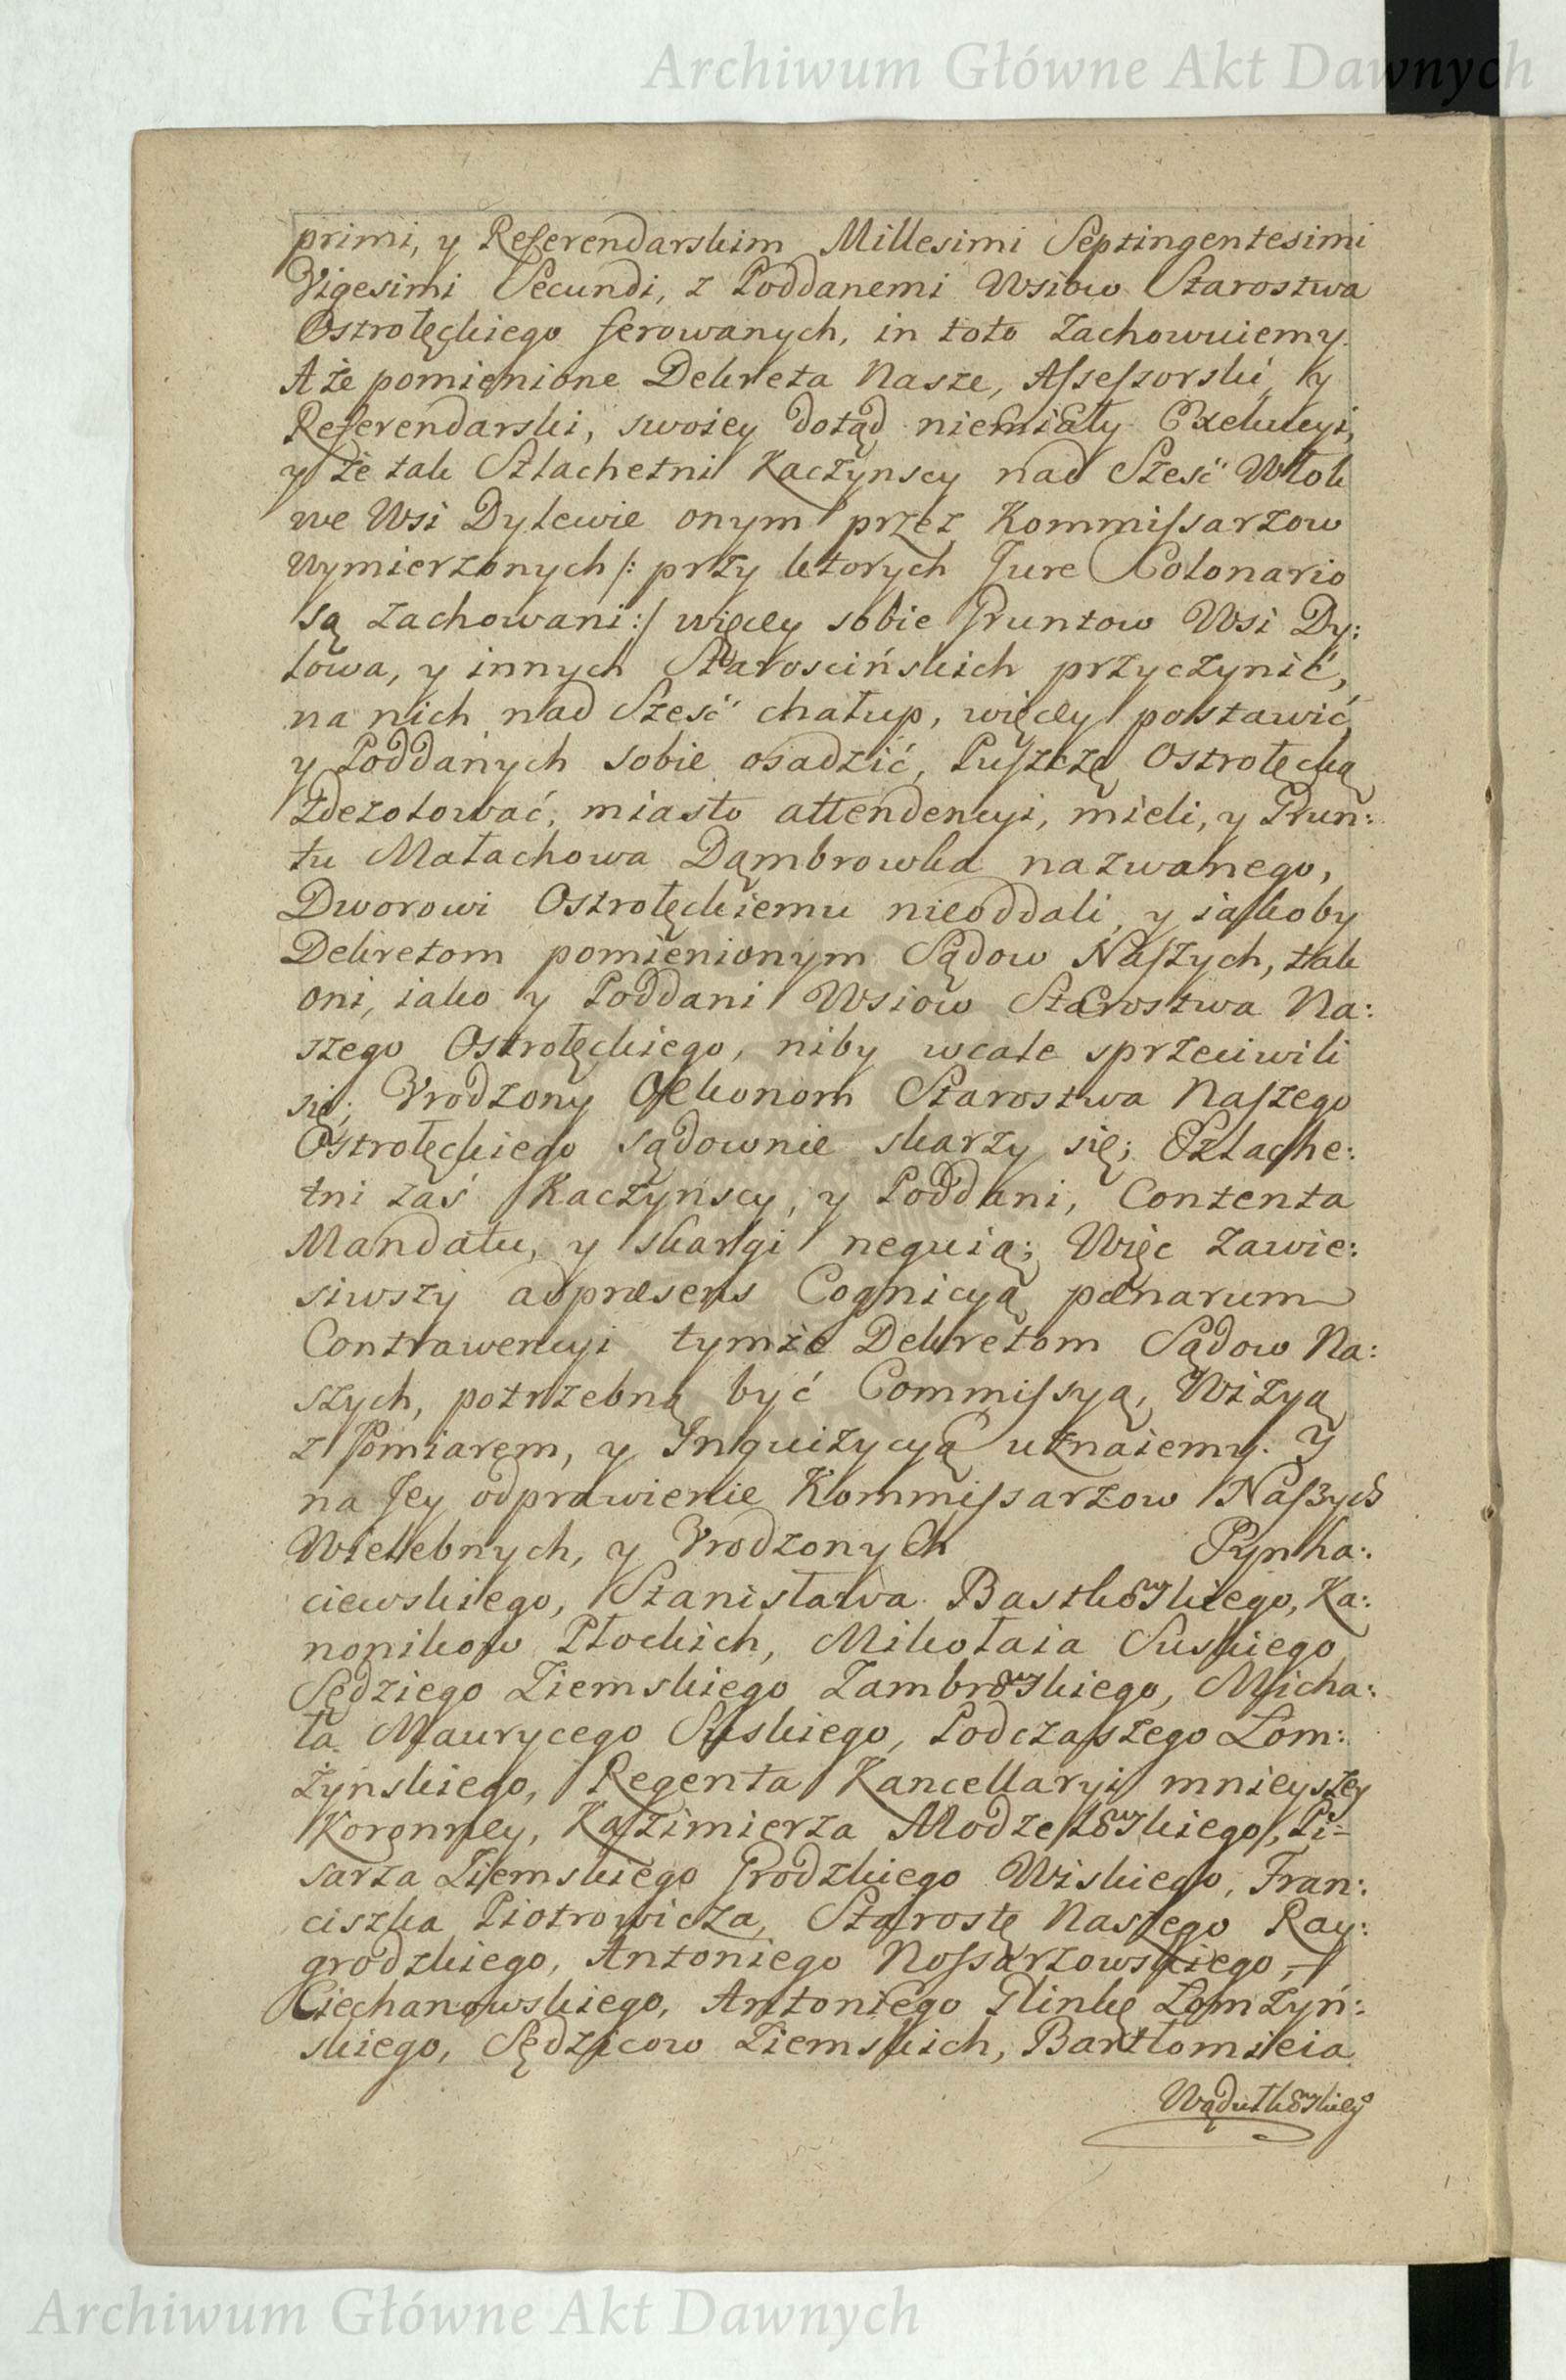 Archiwum Główne Akt Dawnych
primi, y Referendarskim Millesimi Septingentesimi
Vigesimi Secundi, z Poddanemi Wsiow Starostwa
Ostrołęckiego ferowanych, in toto zachowuiemy.
A że pomienione Dekreta Nasze, Assessorski, y
Referendarski, swoiey dotąd niemiały Exekucyi,
y że tak Szlachetni Kaczynscy nad Sześć Włok
we Wsi Dylewie onym przez Kommissarzow
wymierzonych /: przy ktorych Jure Colonario
są zachowani :/ więcey sobie Gruntow Wsi Dy:
lowa, y innych Starościńskich przyczynić,
na nich nad Sześć chałup, więcey postawić,
y Poddanych sobie osadzić, Puszczę Ostrołęcką
zdezolować, miasto attendencyi, mieli, y Grun:
tu Małachowa Dąmbrowka nazwanego,
Dworowi Ostrołęckiemu nieoddali, y iakoby
Dekretom pomienionym Sądow Naszych, tak
oni, iako y Poddani Wsiow Starostwa Na:
szego Ostrołęckiego, niby wcale sprzeciwili
się; Vrodzony Oekonom Starostwa Naszego
Ostrołęckiego sądownie skarzy się; Szlache:
tni zaś Kaczynscy, y Poddani, Contenta
Mandatu, y skargi neguią; Więc zawie:
siwszy adpræsens Cognicyą pœnarum
Contrawencyi tymże Dekretom Sądow Na:
szych, potrzebną być Commissyą, Wizyą
z Pomiarem, y Inquizycyą uznaiemy. Y
na Jey odprawienie Kommissarzow Naszych
Wielebnych, y Vrodzonych Pynha:
ciewskiego, Stanisława Bastkowskiego, Ka:
nonikow Płockich, Mikołaia Suskiego
Sędziego Ziemskiego Zambrowskiego, Micha:
ła Maurycego Suskiego, Podczaszego Łom:
żynskiego, Regenta Kancellaryi mnieyszey
Koronney, Kazimierza Modzelowskiego, Pi=
sarza Ziemskiego Grodzkiego Wiskiego, Fran:
ciszka Piotrowicza, Starostę Naszego Ray:
grodzkiego, Antoniego Nossarzowskiego,
Ciechanowskiego, Antoniego Glinkę Łomżyń:
skiego, Sędzicow Ziemskich, Bartłomieia
Wądutkowskieg°
Archiwum Główne Akt Dawnych